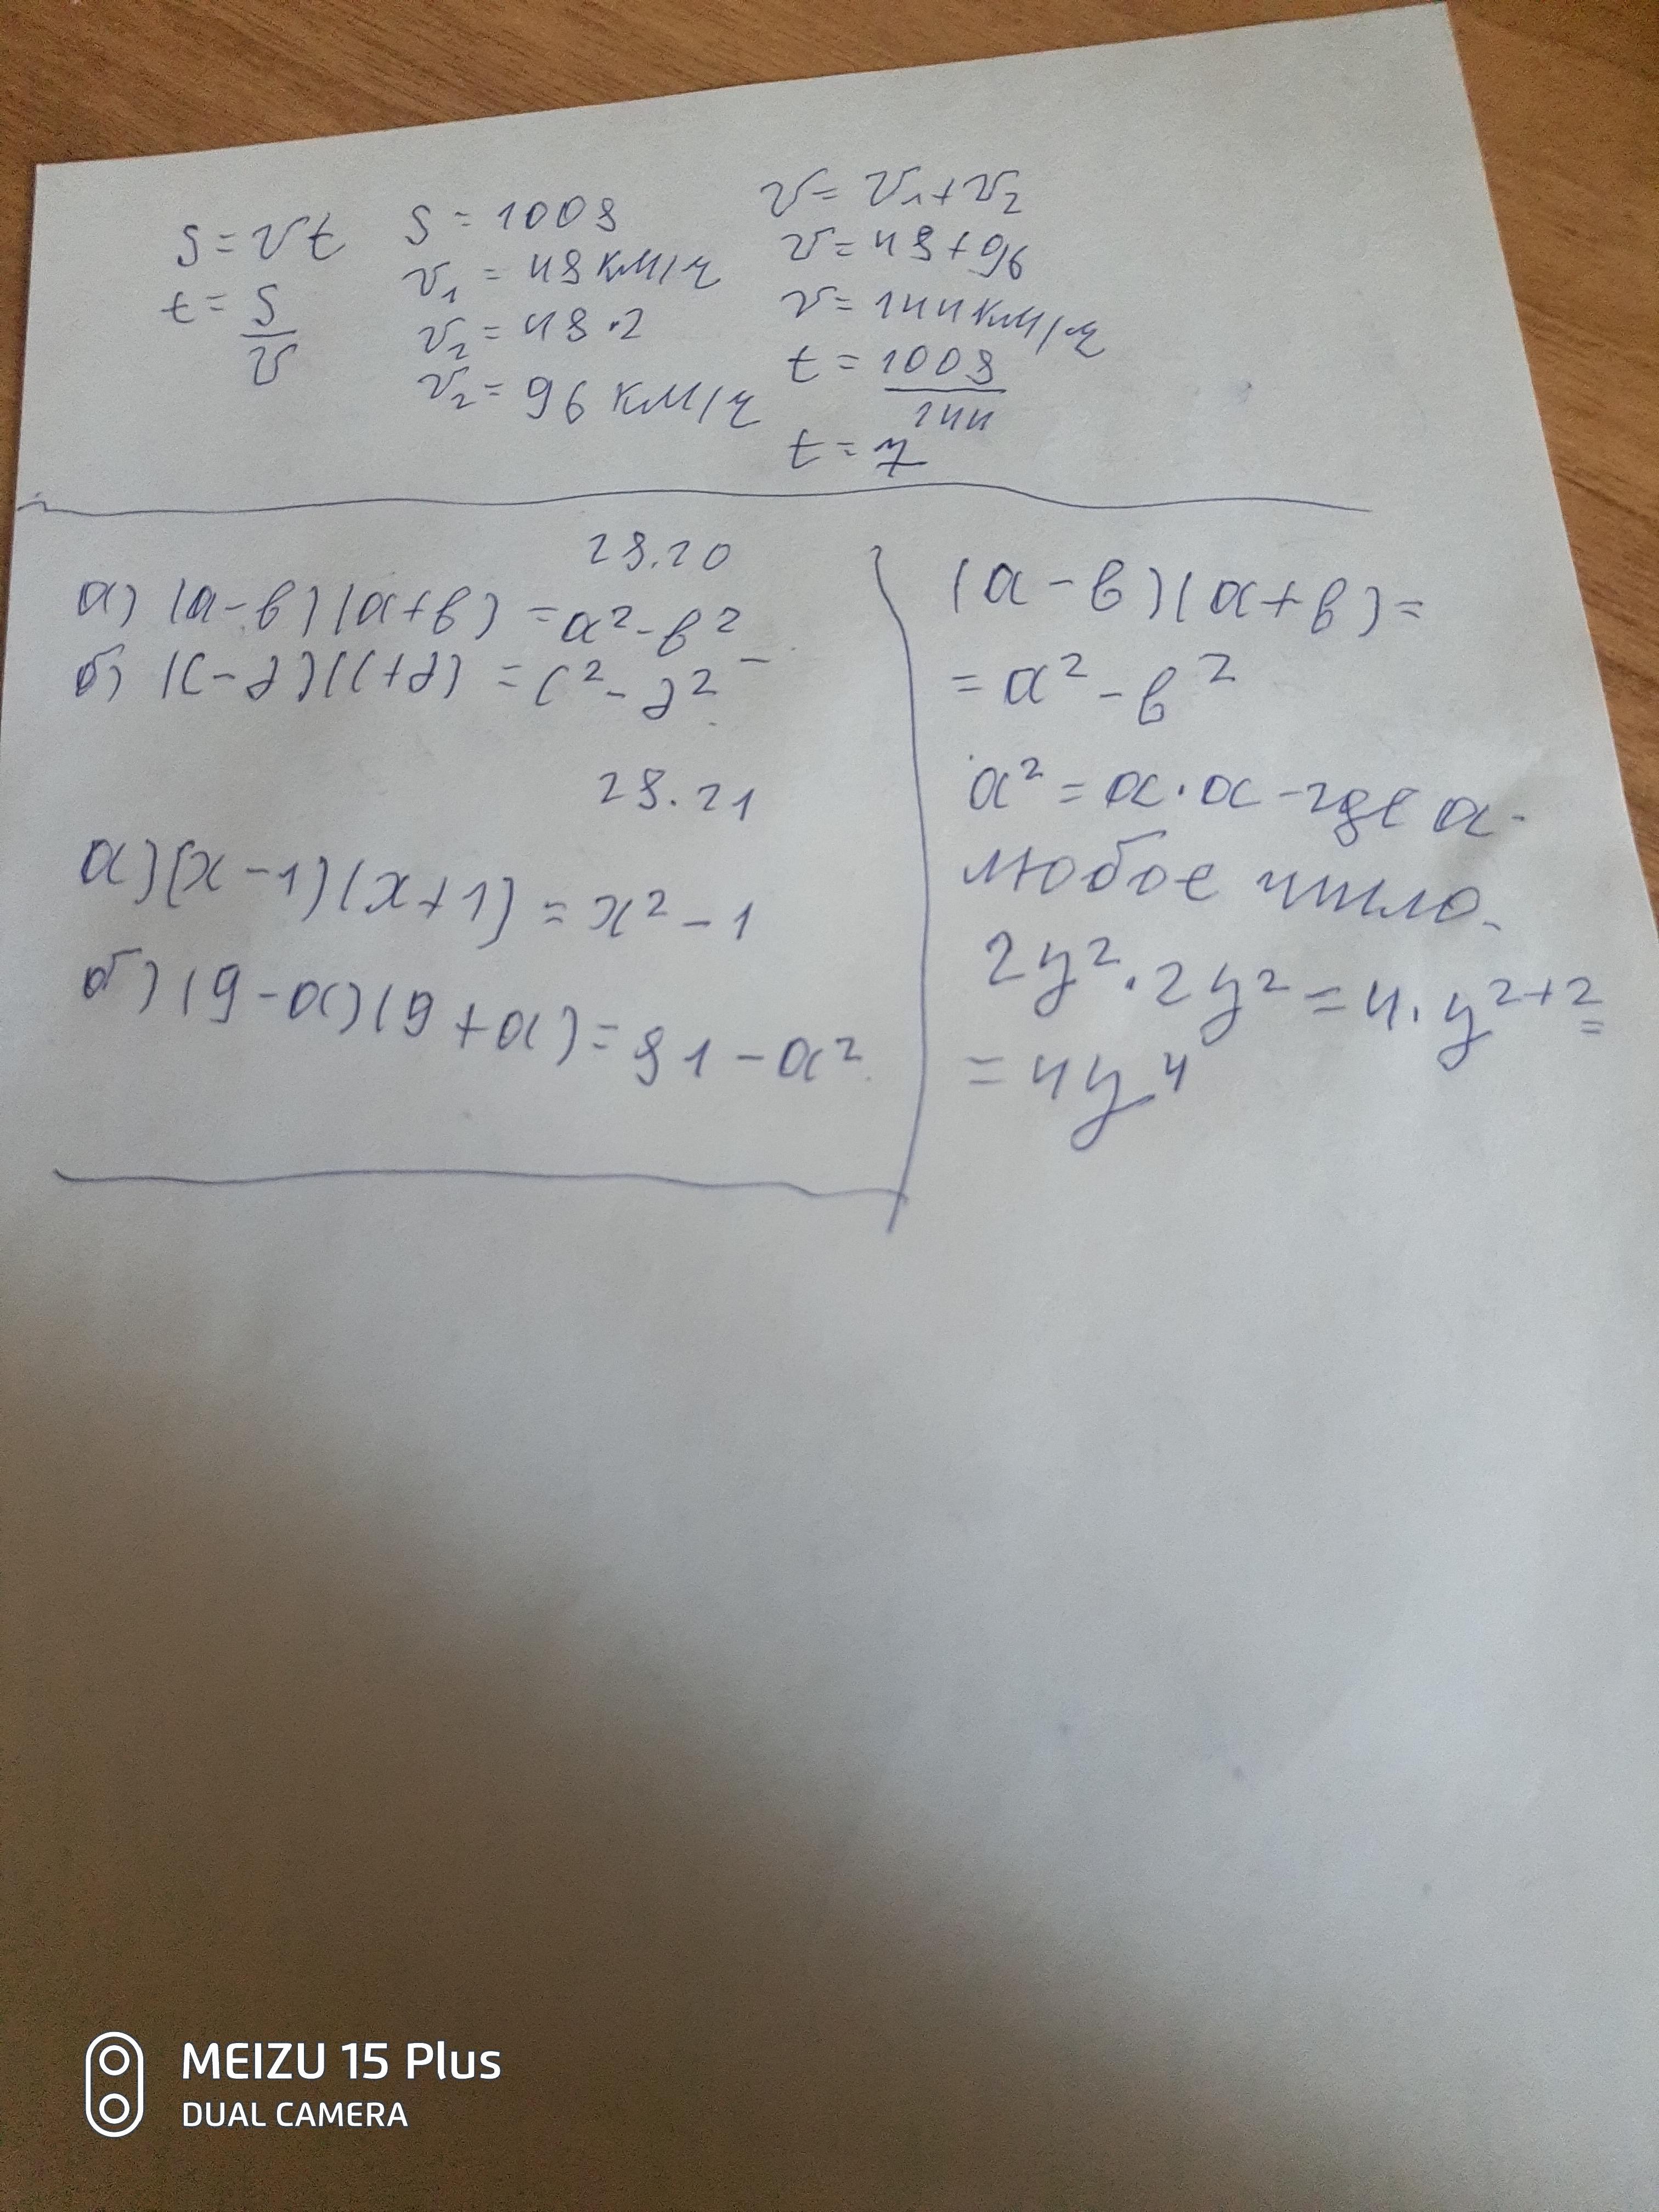 S = vt
t = S/v
S = 1008
v₁ = 48 км/ч
v₂ = 48·2
v₂ = 96 км/ч
v = v₁+v₂
v = 48+96
v = 144 км/ч
t = 1008/144
t = 7
28.20
а) (a-b)(a+b) = a²-b²
б) (c-d)(c+d) = c²-d²
28.21
а) (x-1)(x+1) = x²-1
б) (9-a)(9+a) = 81-a²
(a-b)(a+b) =
= a²-b²
a² = a·a - где a-
любое число.
2y²·2y² = 4·y²⁺² =
= 4y⁴
MEIZU 15 Plus
DUAL CAMERA